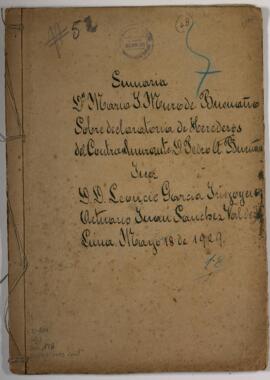 # 52
28
Sumaria
Da. Maria I. Muro de Buenaño
Sobre declaratoria de Herederos
del Contralmirante D. Pedro A. Buenaño
Juez
D. D. Leoncio García Irigoyen
Actuario Juan Sanchez Valdez
Lima Marzo 18 de 1929.